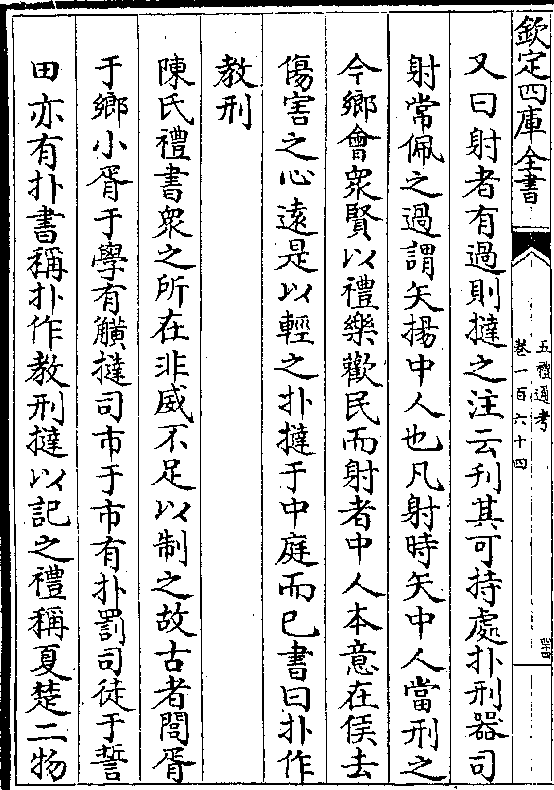 欽定四庫全書
五禮通考
卷一百六十四
又曰射者有過則撻之注云刋其可持處扑刑器司
射常佩之過謂矢揚中人也凡射時矢中人當刑之
今鄉會衆賢以禮樂歡民而射者中人本意在侯去
傷害之心逺是以輕之扑撻于中庭而已書曰扑作
教刑
陳氏禮書衆之所在非威不足以制之故古者閭胥
于鄉小胥于學有觵撻司市于市有扑罰司徒于誓
田亦有扑書稱扑作教刑撻以記之禮稱夏楚二物